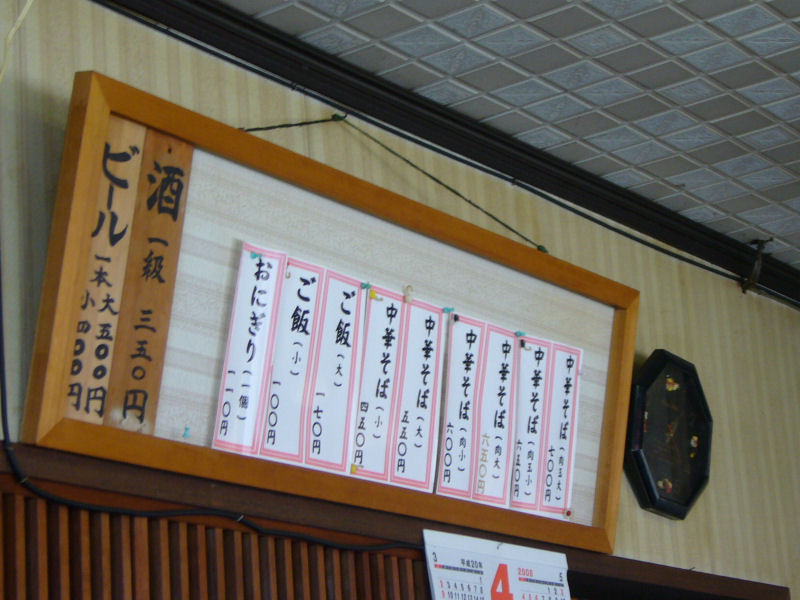 中華そば（肉玉大） 七〇〇円
中華そば（肉玉小） 六五〇円
中華そば（肉大） 六五〇円
中華そば（肉小） 六〇〇円
中華そば（大） 五五〇円
中華そば（小） 四五〇円
ご飯（大） 一七〇円
ご飯（小） 一〇〇円
おにぎり（一個） 一一〇円
酒 一級 三五〇円
ビール 一本 大 五〇〇円
小 四〇〇円
3 平成20年 4 2008 5